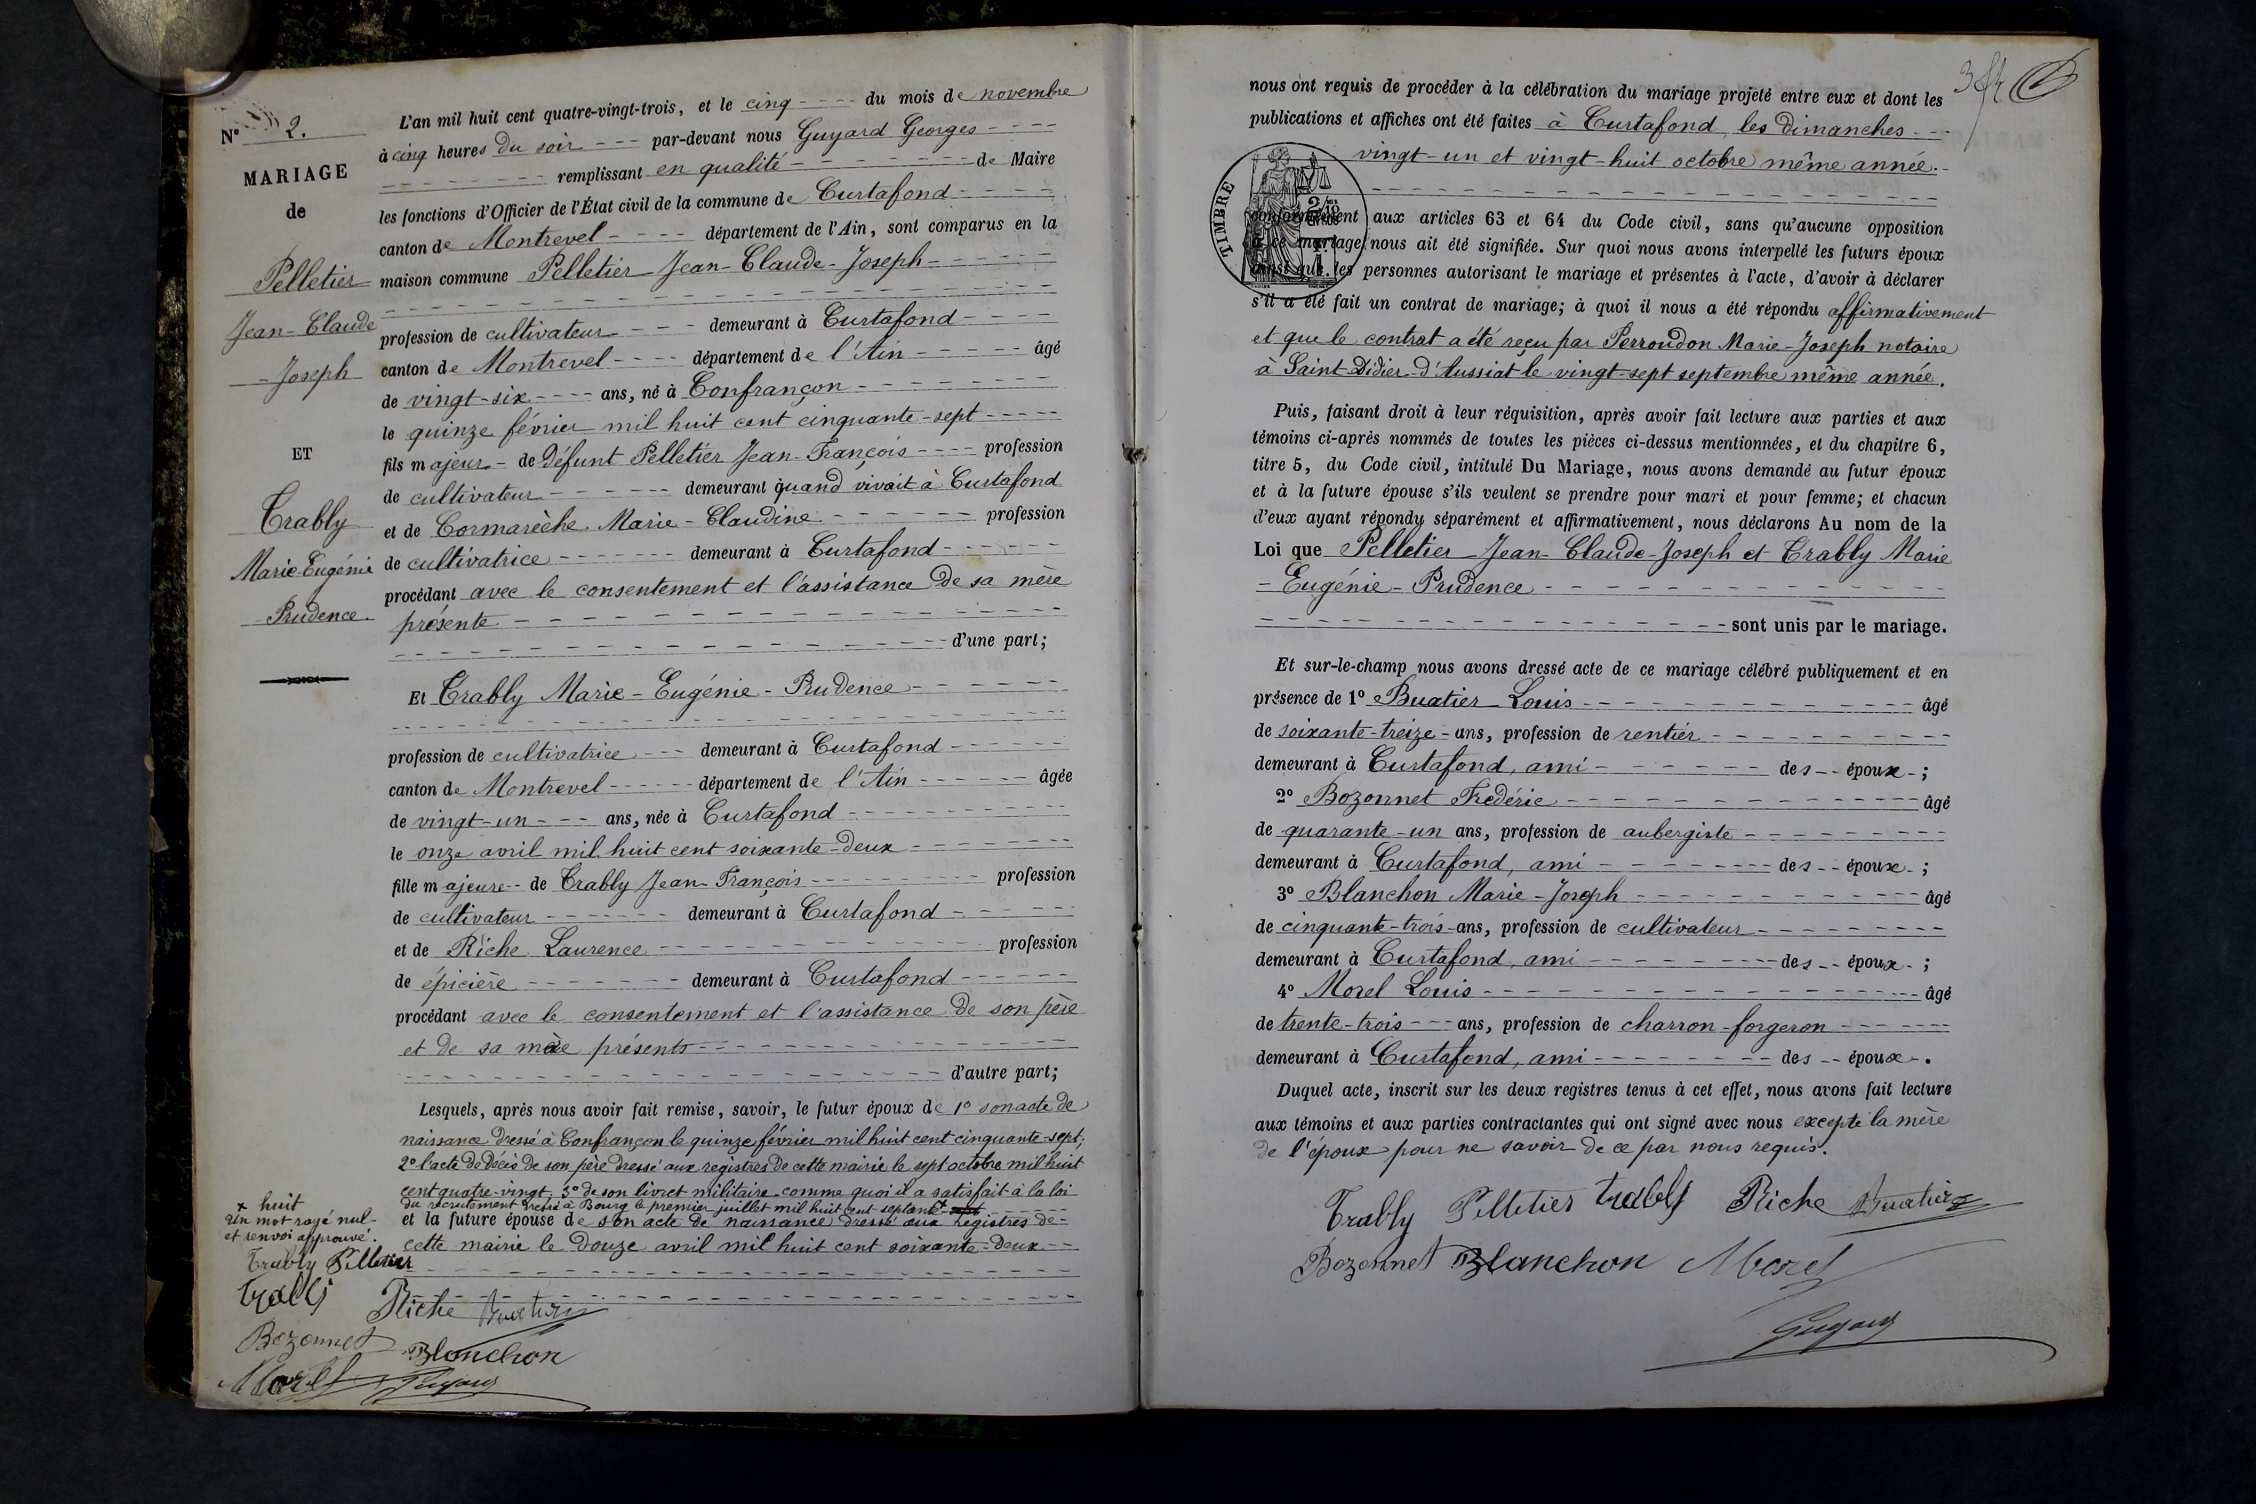 N° 2.
MARIAGE
de
Pelletier
Jean-Claude
-Joseph
ET
Trably
Marie-Eugénie
-Prudence.
L'an mil huit cent quatre-vingt-trois, et le cinq du mois de novembre
à cinq heures du soir par-devant nous Guyard Georges
remplissant en qualité de Maire
les fonctions d'Officier de l'État civil de la commune de Curtafond
canton de Montrevel département de l'Ain, sont comparus en la
maison commune Pelletier Jean-Claude-Joseph
profession de cultivateur demeurant à Curtafond
canton de Montrevel département de l'Ain âgé
de vingt-six ans, né à Confrançon
le quinze février mil huit cent cinquante-sept
fils majeur de défunt Pelletier Jean-François profession
de cultivateur demeurant quand vivait à Curtafond
et de Cormarèche Marie-Claudine profession
de cultivatrice demeurant à Curtafond
procédant avec le consentement et l'assistance de sa mère
présente
d'une part;
Et Trably Marie-Eugénie-Prudence
profession de cultivatrice demeurant à Curtafond
canton de Montrevel département de l'Ain âgée
de vingt-un ans, née à Curtafond
le onze avril mil huit cent soixante-deux
fille majeure de Trably Jean-François profession
de cultivateur demeurant à Curtafond
et de Riche Laurence profession
de épicière demeurant à Curtafond
procédant avec le consentement et l'assistance de son père
et de sa mère présents
d'autre part;
Lesquels, après nous avoir fait remise, savoir, le futur époux de 1° son acte de
naissance dressé à Confrançon le quinze février mil huit cent cinquante-sept;
2° l'acte de décès de son père dressé aux registres de cette mairie le sept octobre mil huit
cent quatre-vingt; 3° de son livret militaire comme quoi il a satisfait à la loi
du recrutement dressé à Bourg le premier juillet mil huit cent septante + sept
et la future épouse de son acte de naissance dressé aux registres de
cette mairie le douze avril mil huit cent soixante-deux
+ huit
Un mot rayé nul
et renvoi approuvé.
Trably Pelletier
Trably Riche Buatier
Bozonnet Blanchon
Morel Guyard
3
nous ont requis de procéder à la célébration du mariage projeté entre eux et dont les
publications et affiches ont été faites à Curtafond, les dimanches
vingt-un et vingt-huit octobre même année.
TIMBRE
conformément aux articles 63 et 64 du Code civil, sans qu'aucune opposition
à ce mariage nous ait été signifiée. Sur quoi nous avons interpellé les futurs époux
ainsi que les personnes autorisant le mariage et présentes à l'acte, d'avoir à déclarer
s'il a été fait un contrat de mariage; à quoi il nous a été répondu affirmativement
et que le contrat a été reçu par Perroudon Marie-Joseph notaire
à Saint-Didier-d'Aussiat le vingt-sept septembre même année.
Puis, faisant droit à leur réquisition, après avoir fait lecture aux parties et aux
témoins ci-après nommés de toutes les pièces ci-dessus mentionnées, et du chapitre 6,
titre 5, du Code civil, intitulé Du Mariage, nous avons demandé au futur époux
et à la future épouse s'ils veulent se prendre pour mari et pour femme; et chacun
d'eux ayant répondu séparément et affirmativement, nous déclarons Au nom de la
Loi que Pelletier Jean-Claude-Joseph et Trably Marie
-Eugénie-Prudence
sont unis par le mariage.
Et sur-le-champ nous avons dressé acte de ce mariage célébré publiquement et en
présence de 1° Buatier Louis âgé
de soixante-treize ans, profession de rentier
demeurant à Curtafond, ami des époux;
2° Bozonnet Frédéric âgé
de quarante-un ans, profession de aubergiste
demeurant à Curtafond, ami des époux;
3° Blanchon Marie-Joseph âgé
de cinquante-trois ans, profession de cultivateur
demeurant à Curtafond, ami des époux;
4° Morel Louis âgé
de trente-trois ans, profession de charron-forgeron
demeurant à Curtafond, ami des époux.
Duquel acte, inscrit sur les deux registres tenus à cet effet, nous avons fait lecture
aux témoins et aux parties contractantes qui ont signé avec nous excepté la mère
de l'époux pour ne savoir de ce par nous requis.
Trably Pelletier Trably Riche Buatier
Bozonnet Blanchon Morel
Guyard